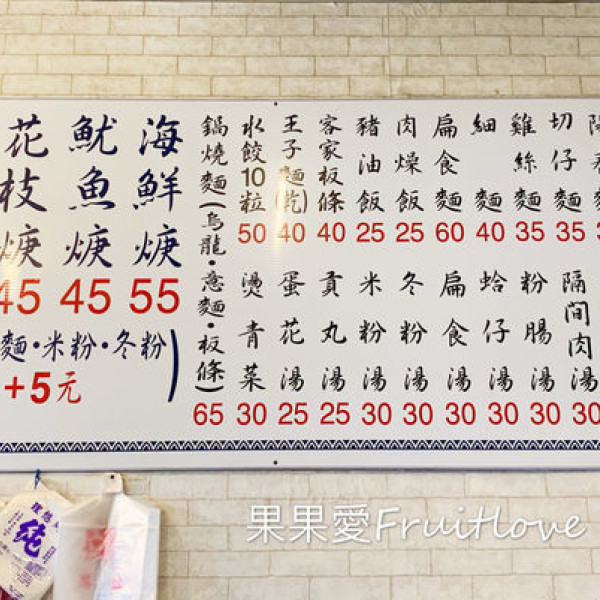 海鮮焿 55
魷魚焿 45
花枝焿 45
麵•米粉•冬粉)
+5元
鍋燒麵(烏龍•意麵•板條) 65
水餃10粒 50
王子麵(乾) 40
客家板條 40
豬油飯 25
肉燥飯 25
扁食麵 60
細麵 40
雞絲麵 35
切仔麵 35
燙青菜 30
蛋花湯 25
貢丸湯 25
米粉湯 30
冬粉湯 30
扁食湯 30
蛤仔湯 30
粉腸湯 30
隔間肉湯 30
純
果果愛Fruitlove